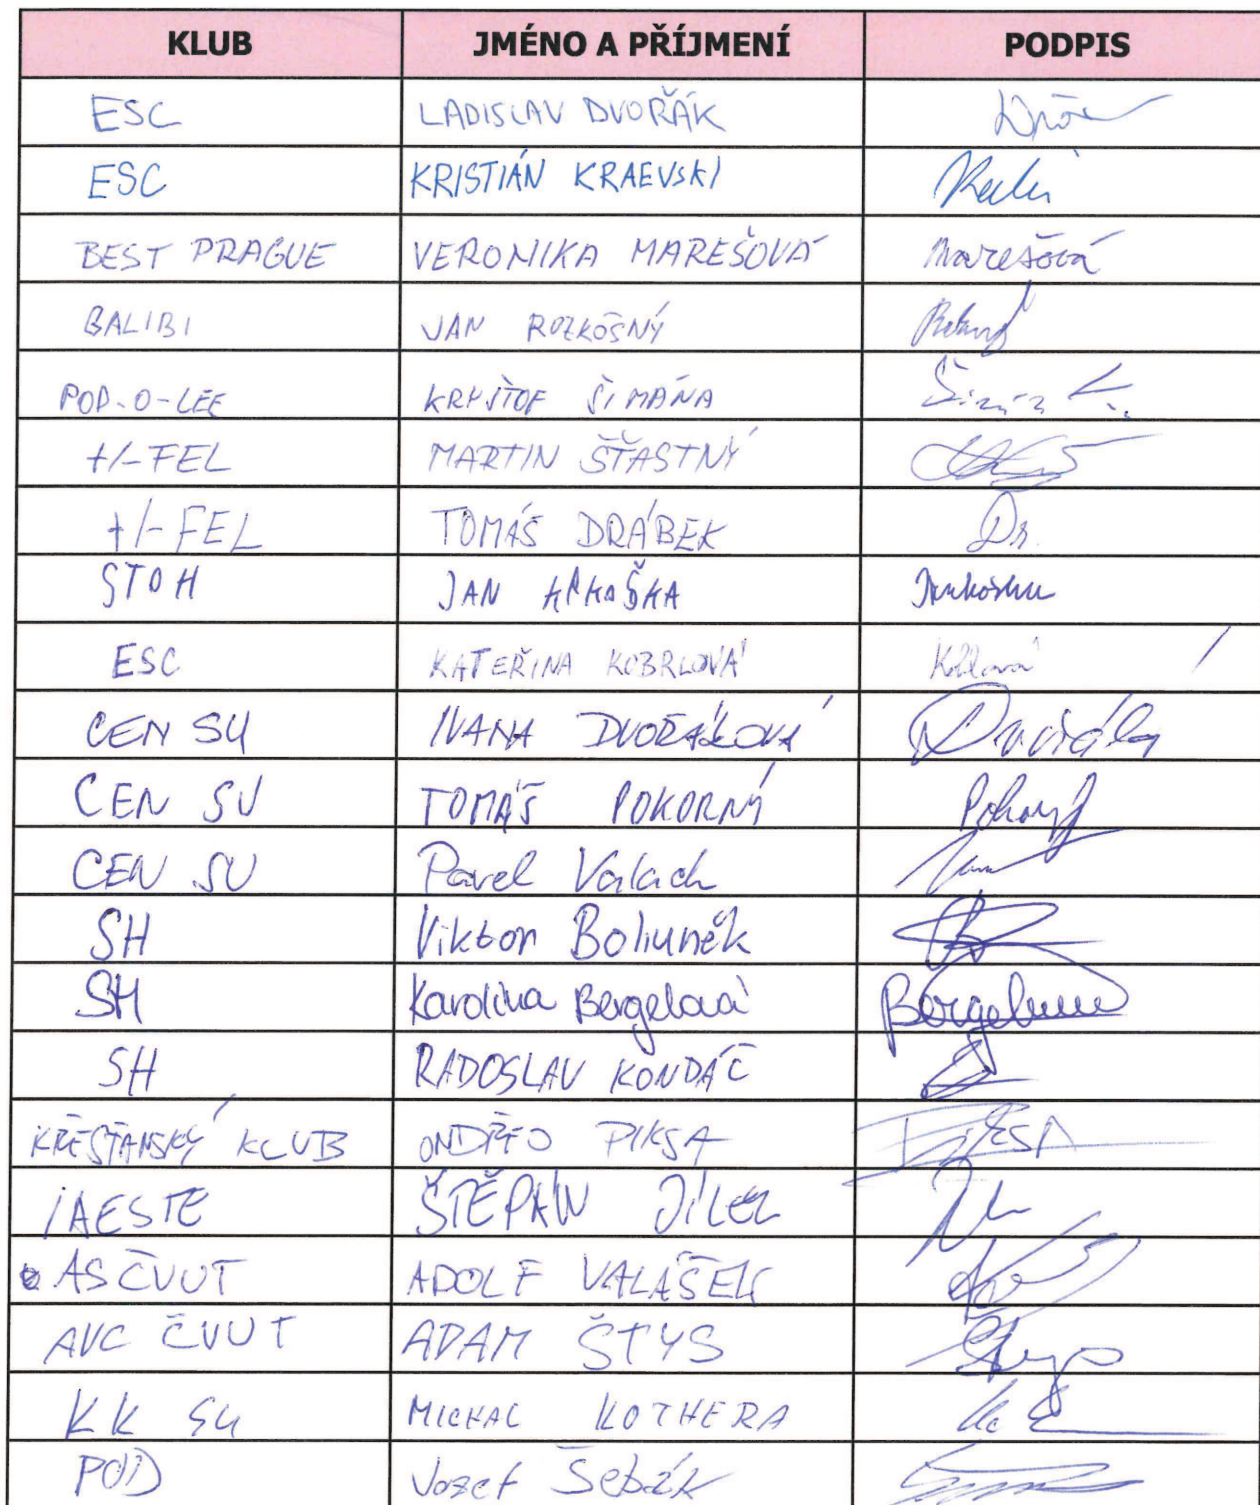 KLUB JMÉNO A PŘÍJMENÍ PODPIS
ESC LADISLAV DVOŘÁK
ESC KRISTIÁN KRAEVSKI
BEST PRAGUE VERONIKA MAREŠOVÁ Marešová
BALIBI JAN ROZKOŠNÝ
POD-O-LEE KRYŠTOF ŠIMÁNA
+/-FEL MARTIN ŠŤASTNÝ
+/-FEL TOMÁŠ DRÁBEK Dr.
STOH JAN
ESC KATEŘINA KOBRLOVÁ
CEN SU IVANA DVOŘÁKOVÁ
CEN SU TOMÁŠ POKORNÝ Pokorný
CEN SU Pavel Valach
SH Viktor Boliunčk
SH Karolina Bergelová
SH RADOSLAV KONDÁČ
KŘESŤANSKÝ KLUB ONDŘEJ PIKSA PIKSA
IAESTE ŠTĚPÁN JÍLEK
AS ČVUT ADOLF VALÁŠEK
AVC ČVUT ADAM ŠTYS Štys
KK SU MICHAL KOTHERA
POD Jozef Šebák